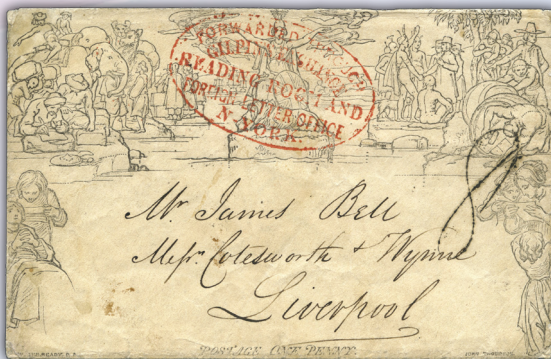 FORWARDED THROUGH
GILPIN'S EXCHANGE
READING ROOM AND
FOREIGN LETTER OFFICE
N. YORK.
8
Mr James Bell
Messrs. Cotesworth & Wynne
Liverpool
POSTAGE ONE PENNY.
W. MULREADY, R.A.
JOHN THOMPSON